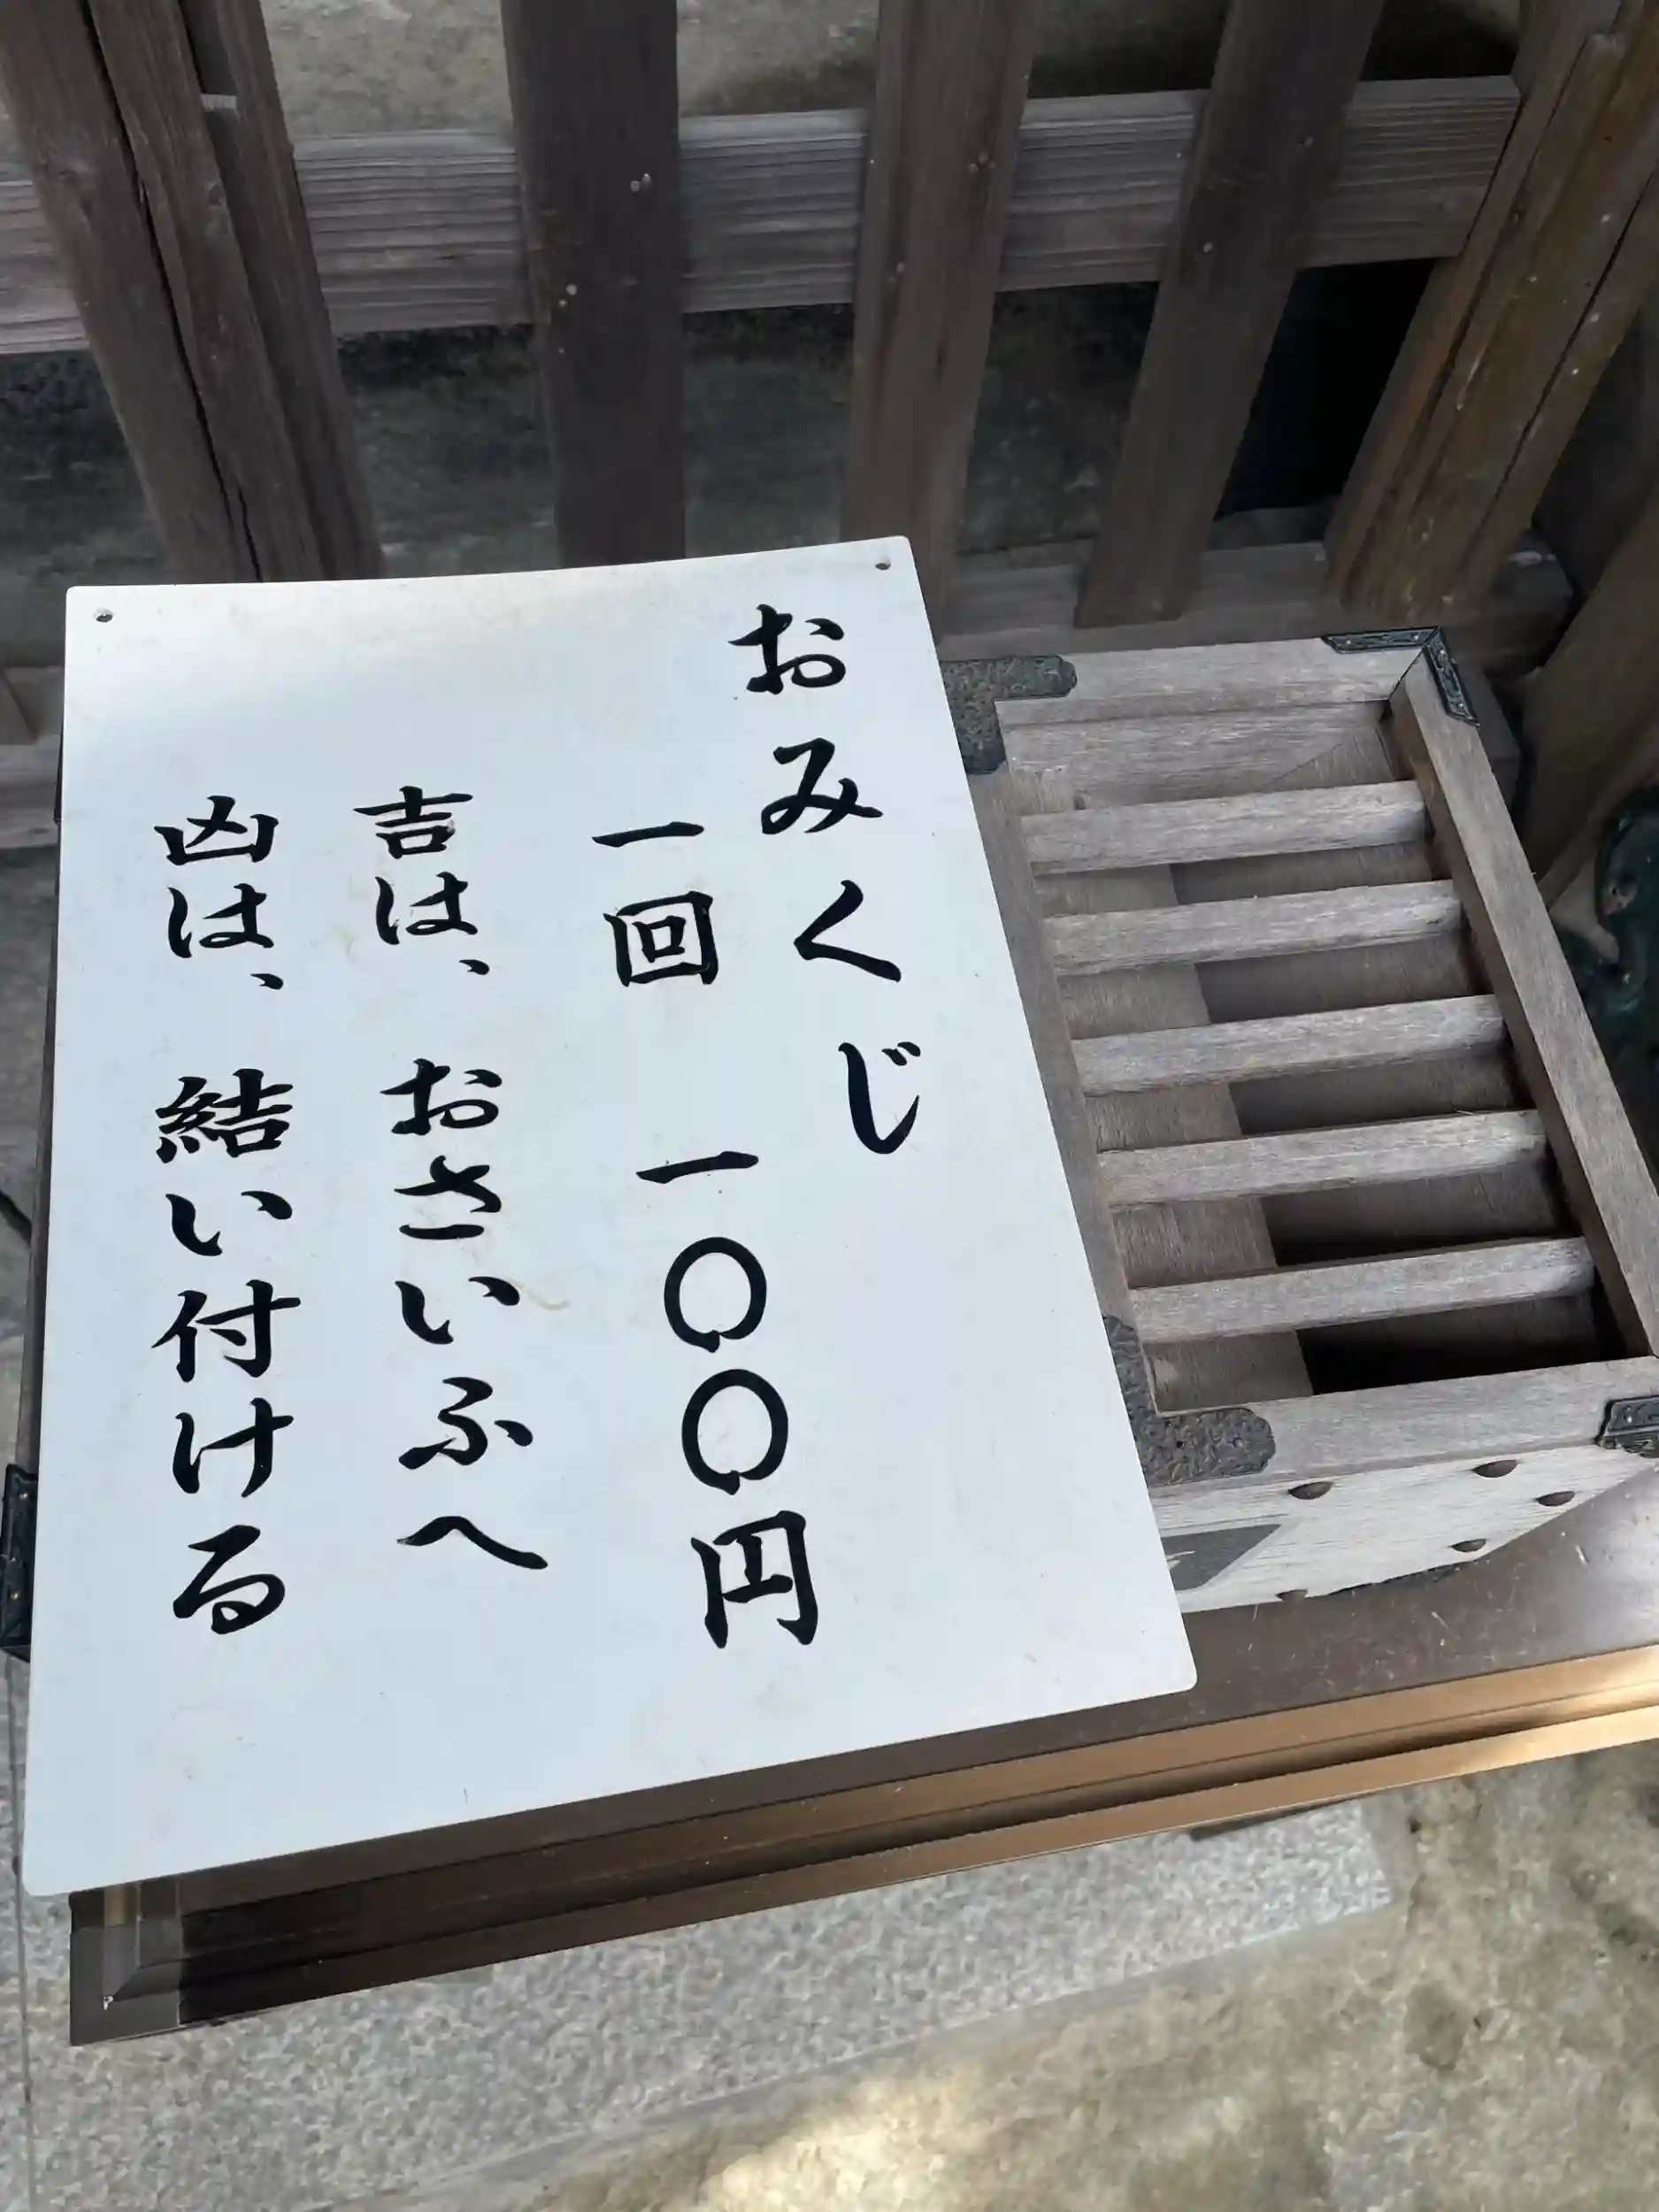 おみくじ
一回 一〇〇円
吉は、おさいふへ
凶は、結い付ける